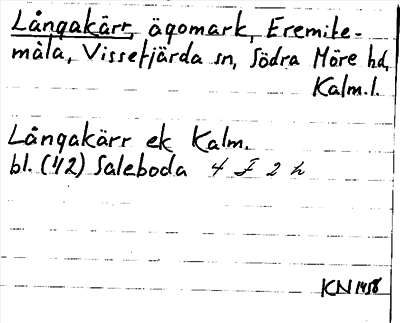 Långakärr, ägomark, Eremite-
måla, Vissefjärda sn, Södra Möre hd,
Kalm.l.
Långakärr ek Kalm.
bl. (42) Saleboda 4 F 2 h
KN 1958